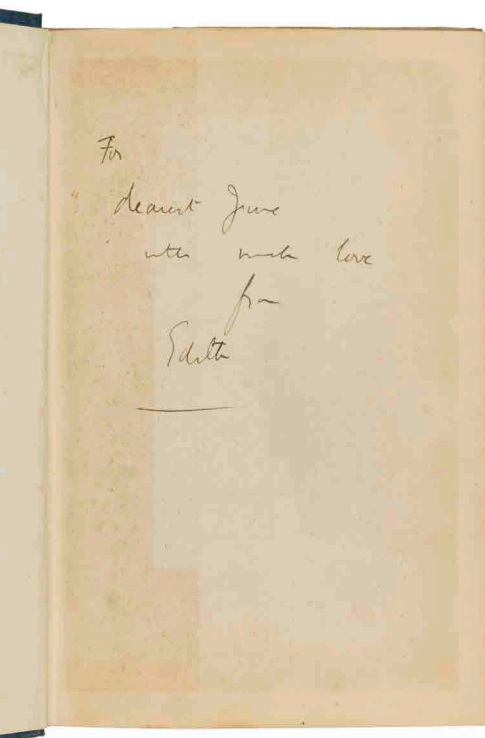 For
dearest June
with much love
from
Edith